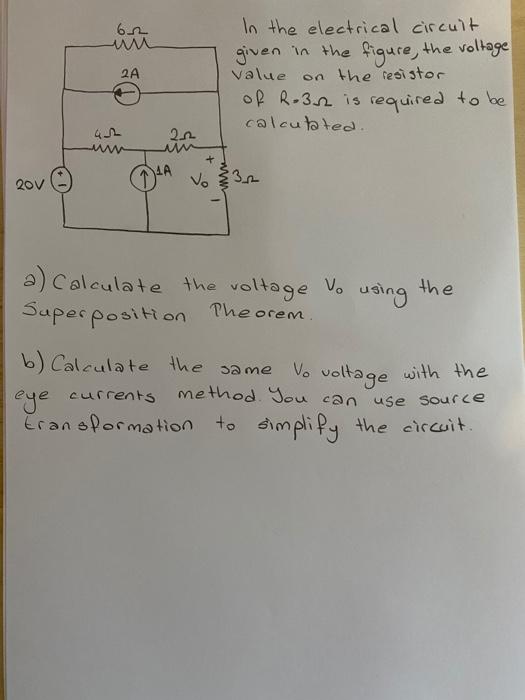 6Ω
In the electrical circuit
given in the figure, the voltage
2A
value on the resistor
of R=3Ω is required to be
calcutated.
4Ω 2Ω
20V 1A Vo 3Ω
a) Calculate the voltage Vo using the
Superposition Theorem.
b) Calculate the same Vo voltage with the
eye currents method. You can use source
transformation to simplify the circuit.